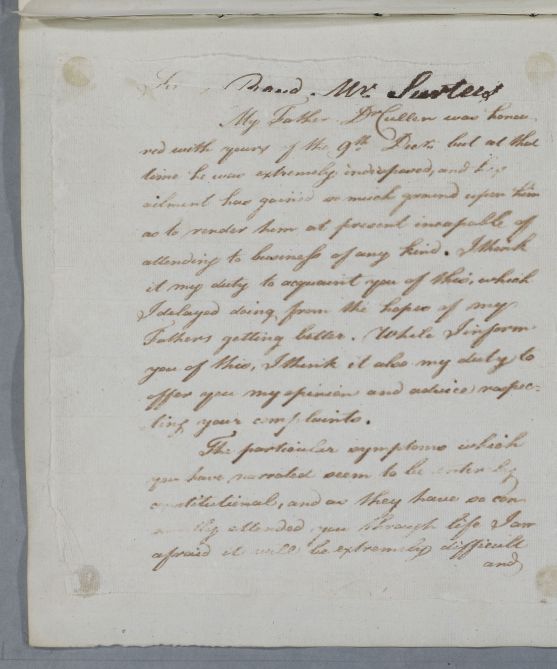 Rand. Mr. Surtees
My Father Dr Cullen was hono-
red with yours of the 9th Decr. but at that
time he was extremely indisposed, and his
ailment has gained so much ground upon him
as to render him at present incapable of
attending to business of any kind. I think
it my duty to acquaint you of this, which
I delayed doing from the hopes of my
Fathers getting better. While I inform
you of this, I think it also my duty to
offer you my opinion and advice respec-
ting your complaints.
The particular symptoms which
you have narrated seem to be entirely
constitutional, and as they have so con-
stantly attended you through life I am
afraid it will be extremely difficult
and